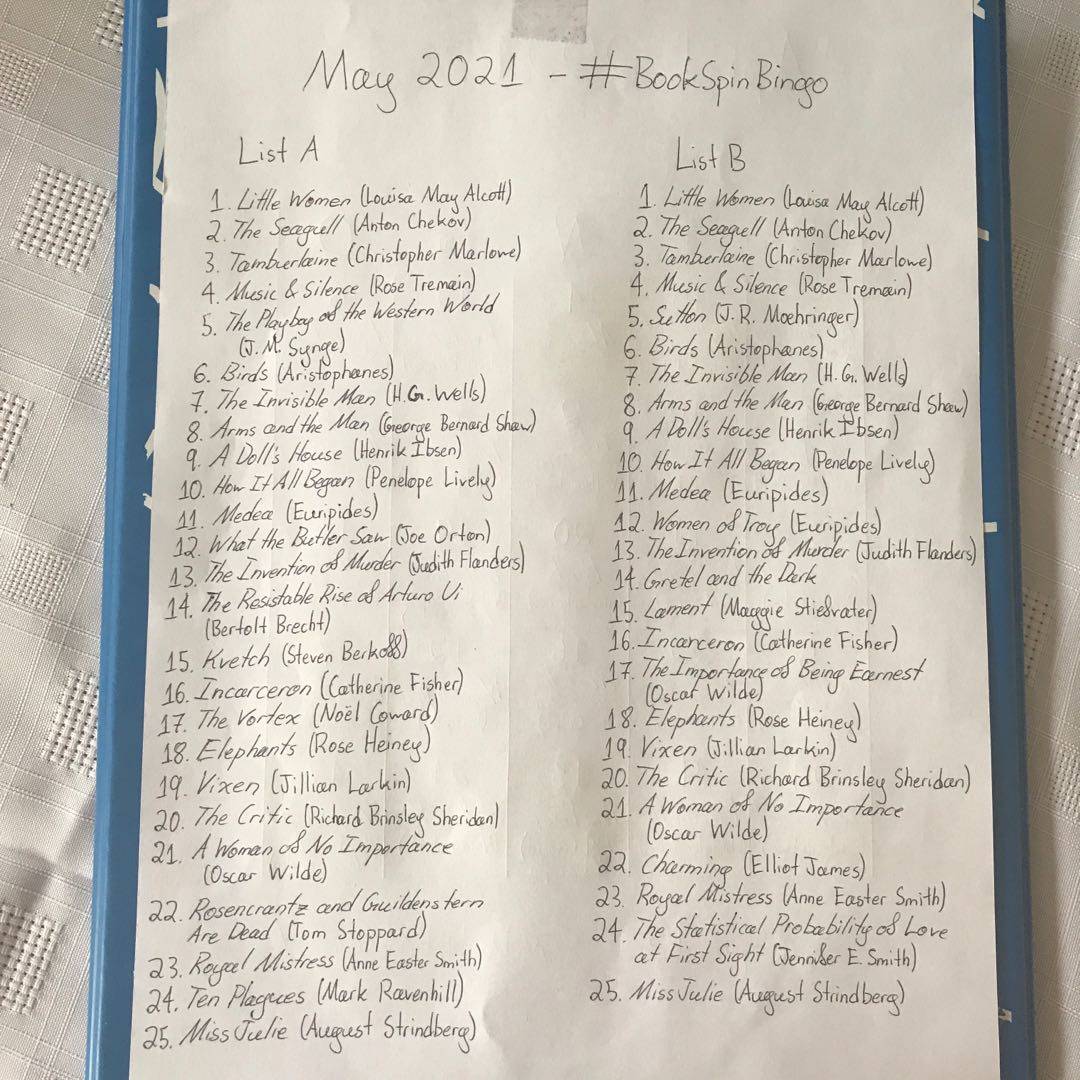 May 2021 - #BookSpinBingo
List A
1. Little Women (Louisa May Alcott)
2. The Seagull (Anton Chekov)
3. Tamburlaine (Christopher Marlowe)
4. Music & Silence (Rose Tremain)
5. The Playboy of the Western World
(J.M. Synge)
6. Birds (Aristophanes)
7. The Invisible Man (H.G. Wells)
8. Arms and the Man (George Bernard Shaw)
9. A Doll's House (Henrik Ibsen)
10. How It All Began (Penelope Lively)
11. Medea (Euripides)
12. What the Butler Saw (Joe Orton)
13. The Invention of Murder (Judith Flanders)
14. The Resistable Rise of Arturo Ui
(Bertolt Brecht)
15. Kvetch (Steven Berkoff)
16. Incarceron (Catherine Fisher)
17. The Vortex (Noël Coward)
18. Elephants (Rose Heiney)
19. Vixen (Jillian Larkin)
20. The Critic (Richard Brinsley Sheridan)
21. A Woman of No Importance
(Oscar Wilde)
22. Rosencrantz and Guildenstern
Are Dead (Tom Stoppard)
23. Royal Mistress (Anne Easter Smith)
24. Ten Plagues (Mark Ravenhill)
25. Miss Julie (August Strindberg)
List B
1. Little Women (Louisa May Alcott)
2. The Seagull (Anton Chekov)
3. Tamburlaine (Christopher Marlowe)
4. Music & Silence (Rose Tremain)
5. Sutton (J.R. Moehringer)
6. Birds (Aristophanes)
7. The Invisible Man (H.G. Wells)
8. Arms and the Man (George Bernard Shaw)
9. A Doll's House (Henrik Ibsen)
10. How It All Began (Penelope Lively)
11. Medea (Euripides)
12. Women of Troy (Euripides)
13. The Invention of Murder (Judith Flanders)
14. Gretel and the Dark
15. Lament (Maggie Stiefvater)
16. Incarceron (Catherine Fisher)
17. The Importance of Being Earnest
(Oscar Wilde)
18. Elephants (Rose Heiney)
19. Vixen (Jillian Larkin)
20. The Critic (Richard Brinsley Sheridan)
21. A Woman of No Importance
(Oscar Wilde)
22. Charming (Elliot James)
23. Royal Mistress (Anne Easter Smith)
24. The Statistical Probability of Love
at First Sight (Jennifer E. Smith)
25. Miss Julie (August Strindberg)